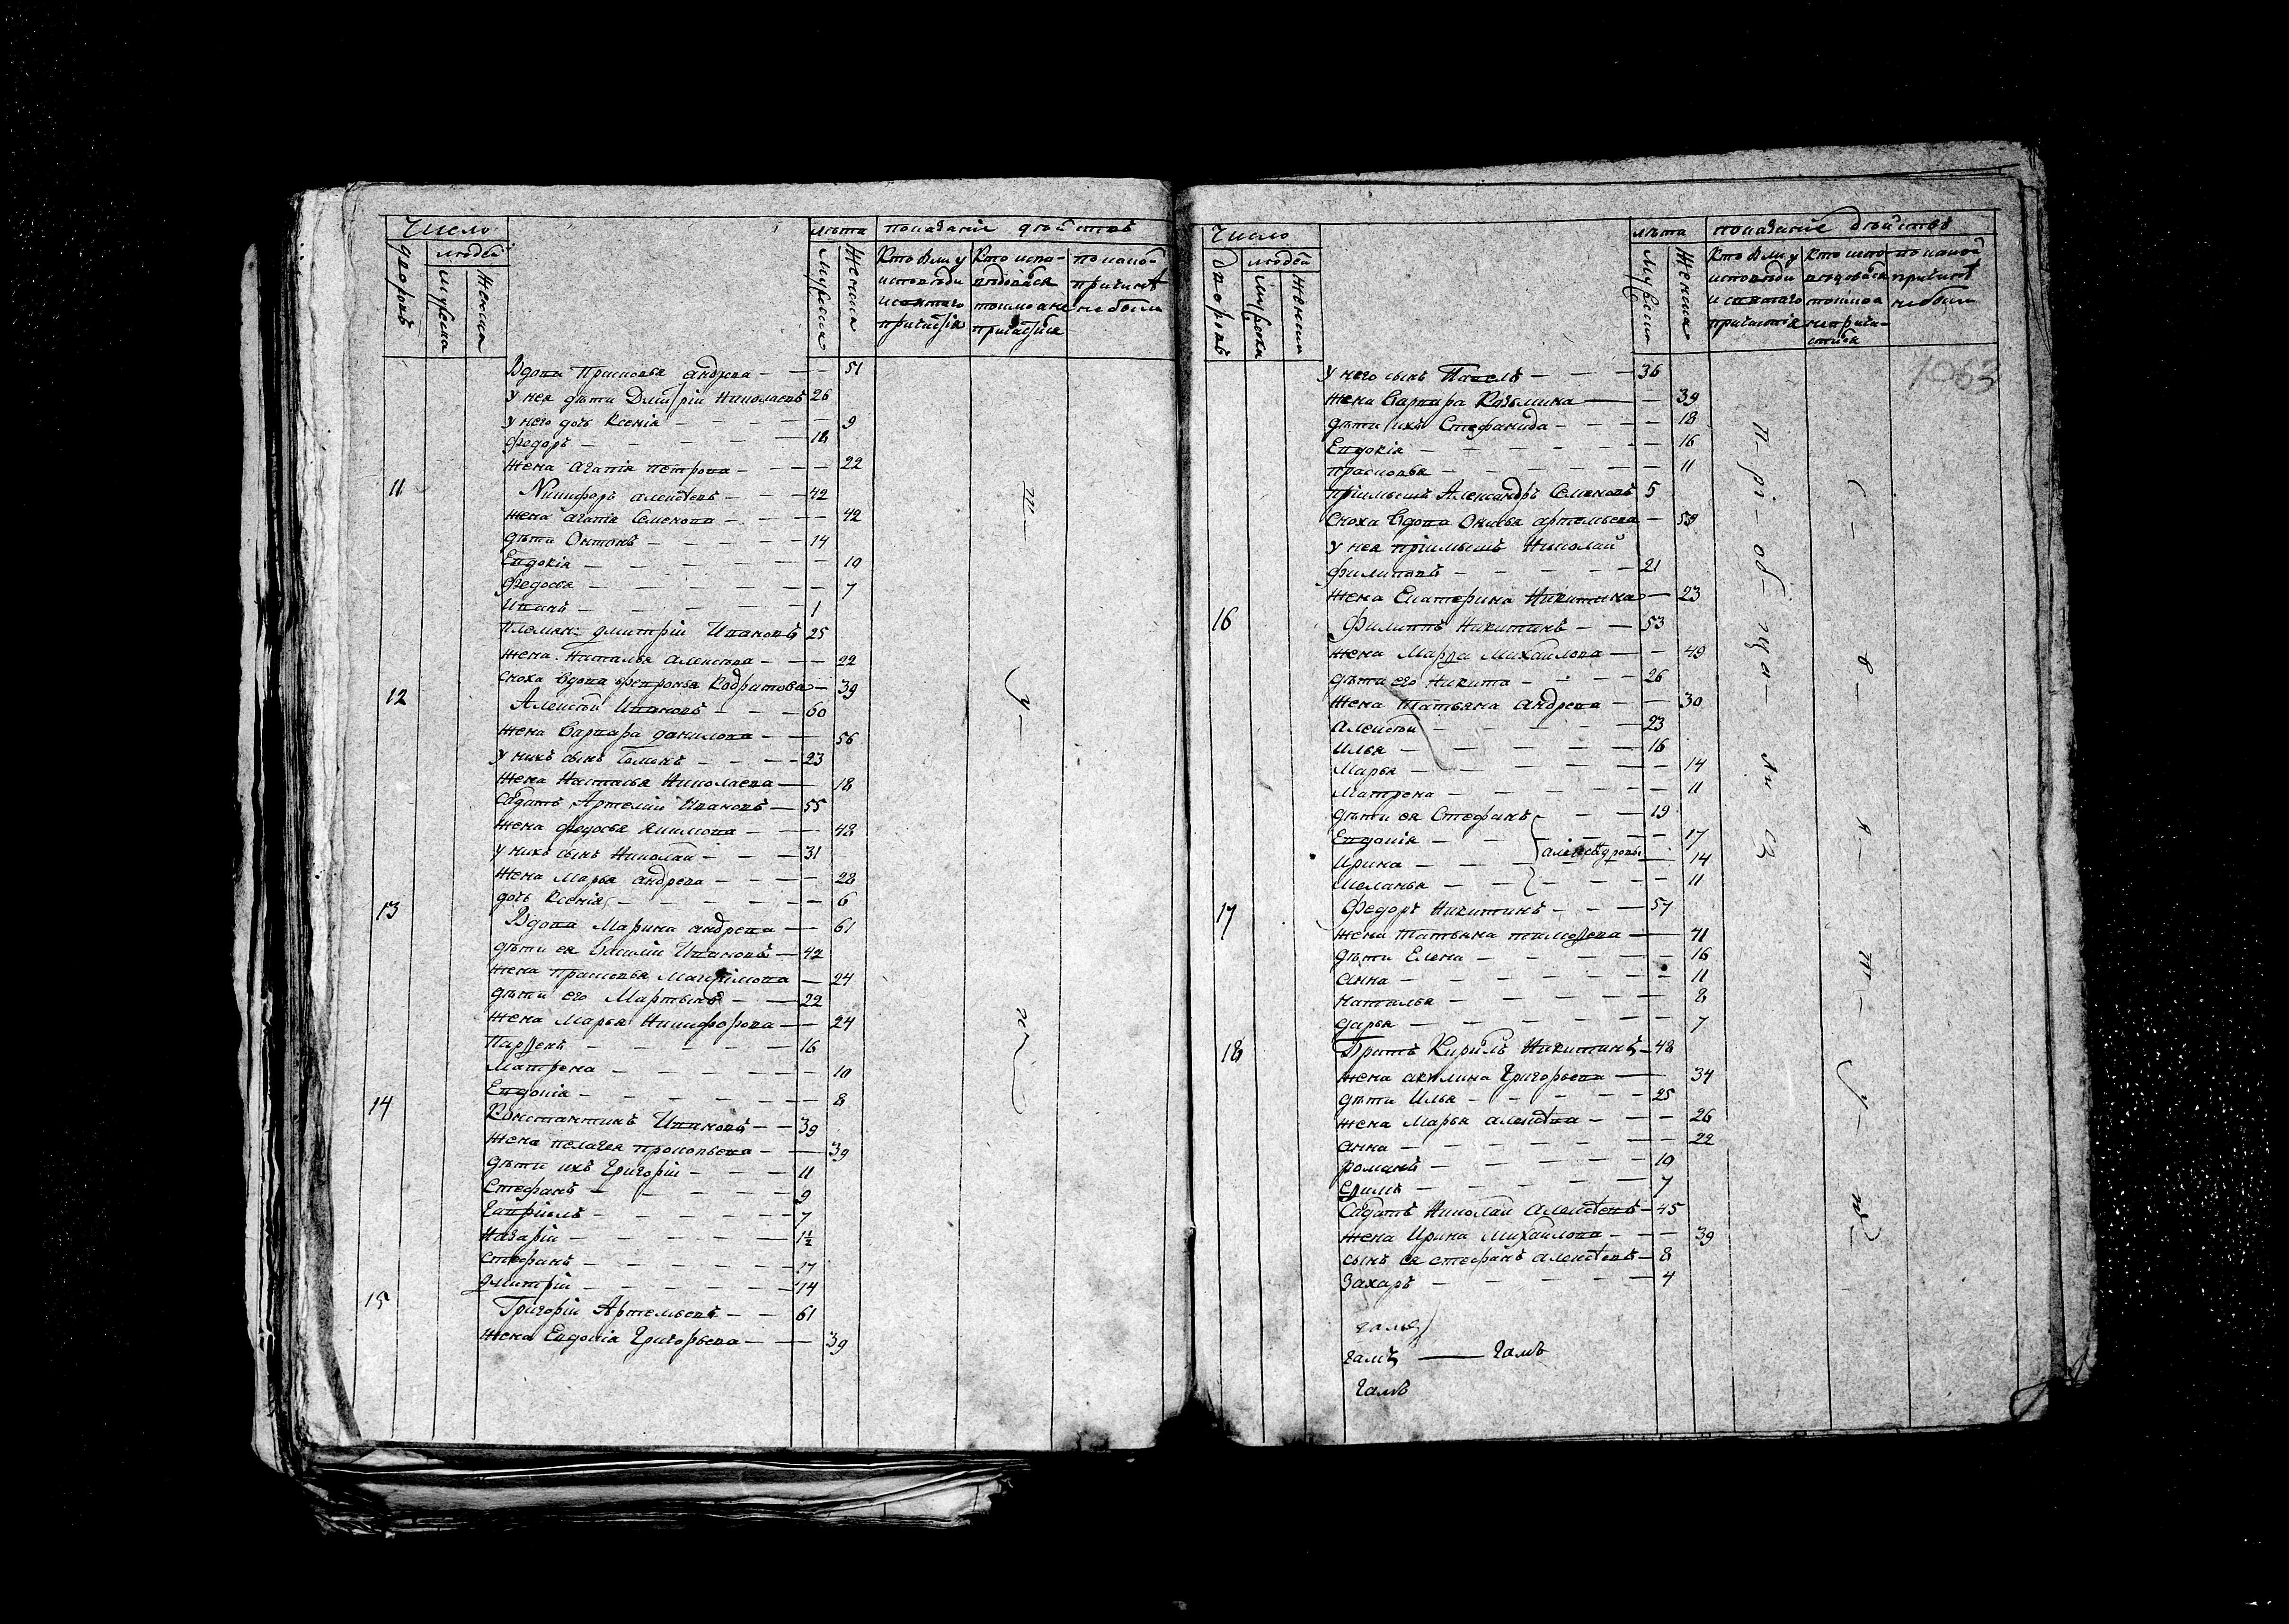 Число
лѣта показаніе дѣйствъ
дворовъ
людей
мужеска
Женска
Мужеска
Женска
Кто былъ у исповѣди и святаго причастія
Кто испо-
вѣдовался токмо а не причастился
по какой причинѣ не были
Вдова Прасковья андрева — — 51
У нея дѣти Дмитрій Николаевъ 26
у него дочь Ксенія — — 9
Федоръ — — 18
жена агапія петрова — — 22
11 Никифоръ алексѣевъ — — 42
жена агапія Семенова — — 42
дѣти Онтонъ — — 14
Евдокія — — 10
Федосья — — 7
Иванъ — — 1
племян: дмитрій Ивановъ 25
жена Наталья алексѣева — — 22
сноха вдова февронья Кодратова — 39
12 Алексѣй Ивановъ — — 60
жена Варвара данилова — — 56
у нихъ сынъ — — 23
жена Настасья Николаева — 18
Салдатъ Артемій Ивановъ — 55
жена федосья якимова — — 48
у нихъ сынъ Николай — — 31
жена Марья андрева — — 28
дочь Ксенія — — 6
13 Вдова Марина андрева — 61
дѣти ея Василій Ивановъ — 42
жена Прасковья — 24
дѣти его Мартынъ — — 22
жена Марья Никифорова — — 24
Парѳенъ — — 16
Матрена — — 10
Евдокія — — 8
14 Константинъ Ивановъ — — 39
жена пелагея прокопьева — — 39
дѣти ихъ Григорій — — 11
Стефанъ — — 9
Гавріилъ — — 7
Назарій — — 1½
Стефанъ — — 17
дмитрій — — 14
15 Григорій Артемьевъ — — 61
жена Евдокія Григорьева — — 39
Число
лѣта показаніе дѣйствъ
дворовъ
людей
мужеска
Женски
Мужеска
Женска
1062
У него сынъ Павелъ — — 36
жена Варвара Козьмина — — 39
дѣти ихъ Стефанида — — 18
Евдокія — — 16
прасковья — — 11
пріимышъ Александръ Семеновъ 5
сноха вдова артемьева — 59
у нея пріимышъ Николай
филиповъ — — 21
жена Екатерина Никитина — 23
16 Филиппъ Никитинъ — — 53
жена Марѳа Михайлова — — 49
дѣти его Никита — — 26
жена Татьяна андрева — — 30
алексѣй — — 23
илья — — 16
Марья — — 14
Матрена — — 11
дѣти ея Стефанъ — — 19
Евдокія — — 17
Ирина — — александровы 14
Меланья — — 11
17 Федоръ Никитинъ — — 57
жена Татьяна тимоѳева — 41
дѣти Елена — — 16
анна — — 11
наталья — — 8
дарья — — 7
18 Братъ Кирилъ Никитинъ — 48
жена акилина Григорьева — 34
дѣти Илья — — 25
жена Марья алексѣева — — 26
анна — — 22
романъ — — 10
ефимъ — — 7
Салдатъ Николай алексѣевъ — 45
жена Ирина Михайлова — — 39
сынъ ея стефанъ алексѣевъ — 8
Захаръ — — 4